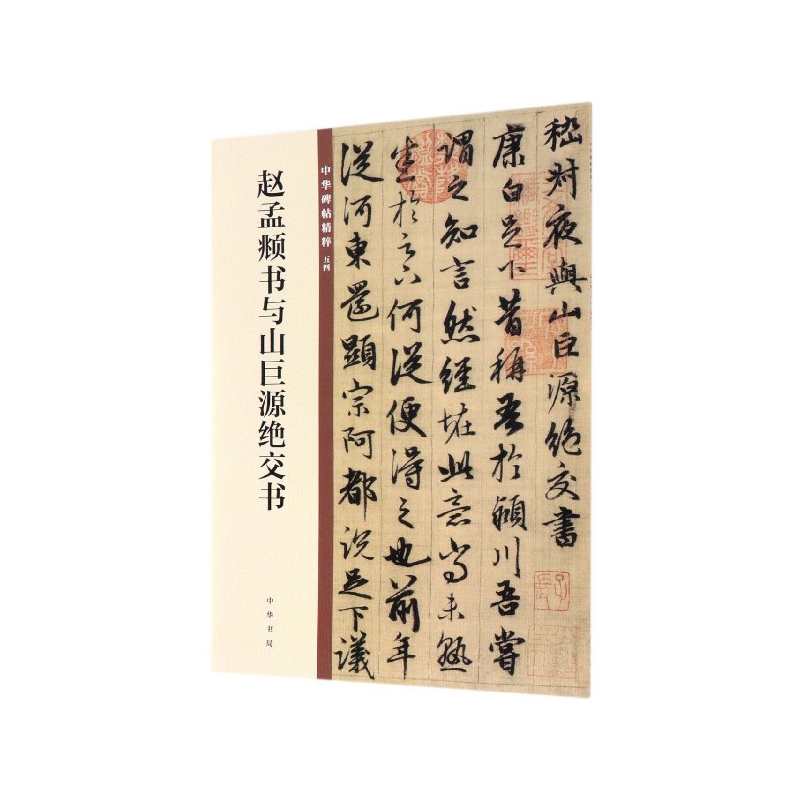 赵孟𫖯书与山巨源绝交书
中华碑帖精粹 五四
中华书局
嵇叔夜與山巨源絶交書
康白足下昔稱吾於潁川吾嘗
謂之知言然經怪此意尚未熟
悉於足下何從便得之也前年
從河東還顯宗阿都說足下議